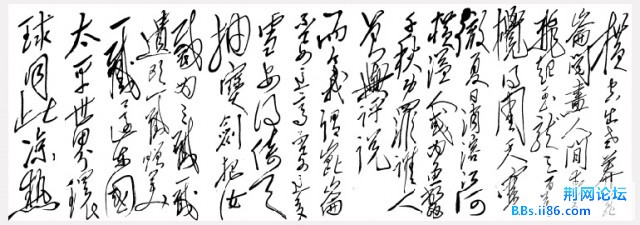 横空出世莽昆
崙阅尽人间春色
飞起玉龙三百万
搅得周天寒
彻夏日消溶江河
横溢人或为鱼鳖
千秋功罪谁人
曾與评说
而今我谓崑崙
不要这高不要这多
雪安得倚天
抽寶剑把汝
裁为三截一截
遗欧一截赠美
一截还东國
太平世界環
球同此凉热
荆网论坛
BBs.ii86.com